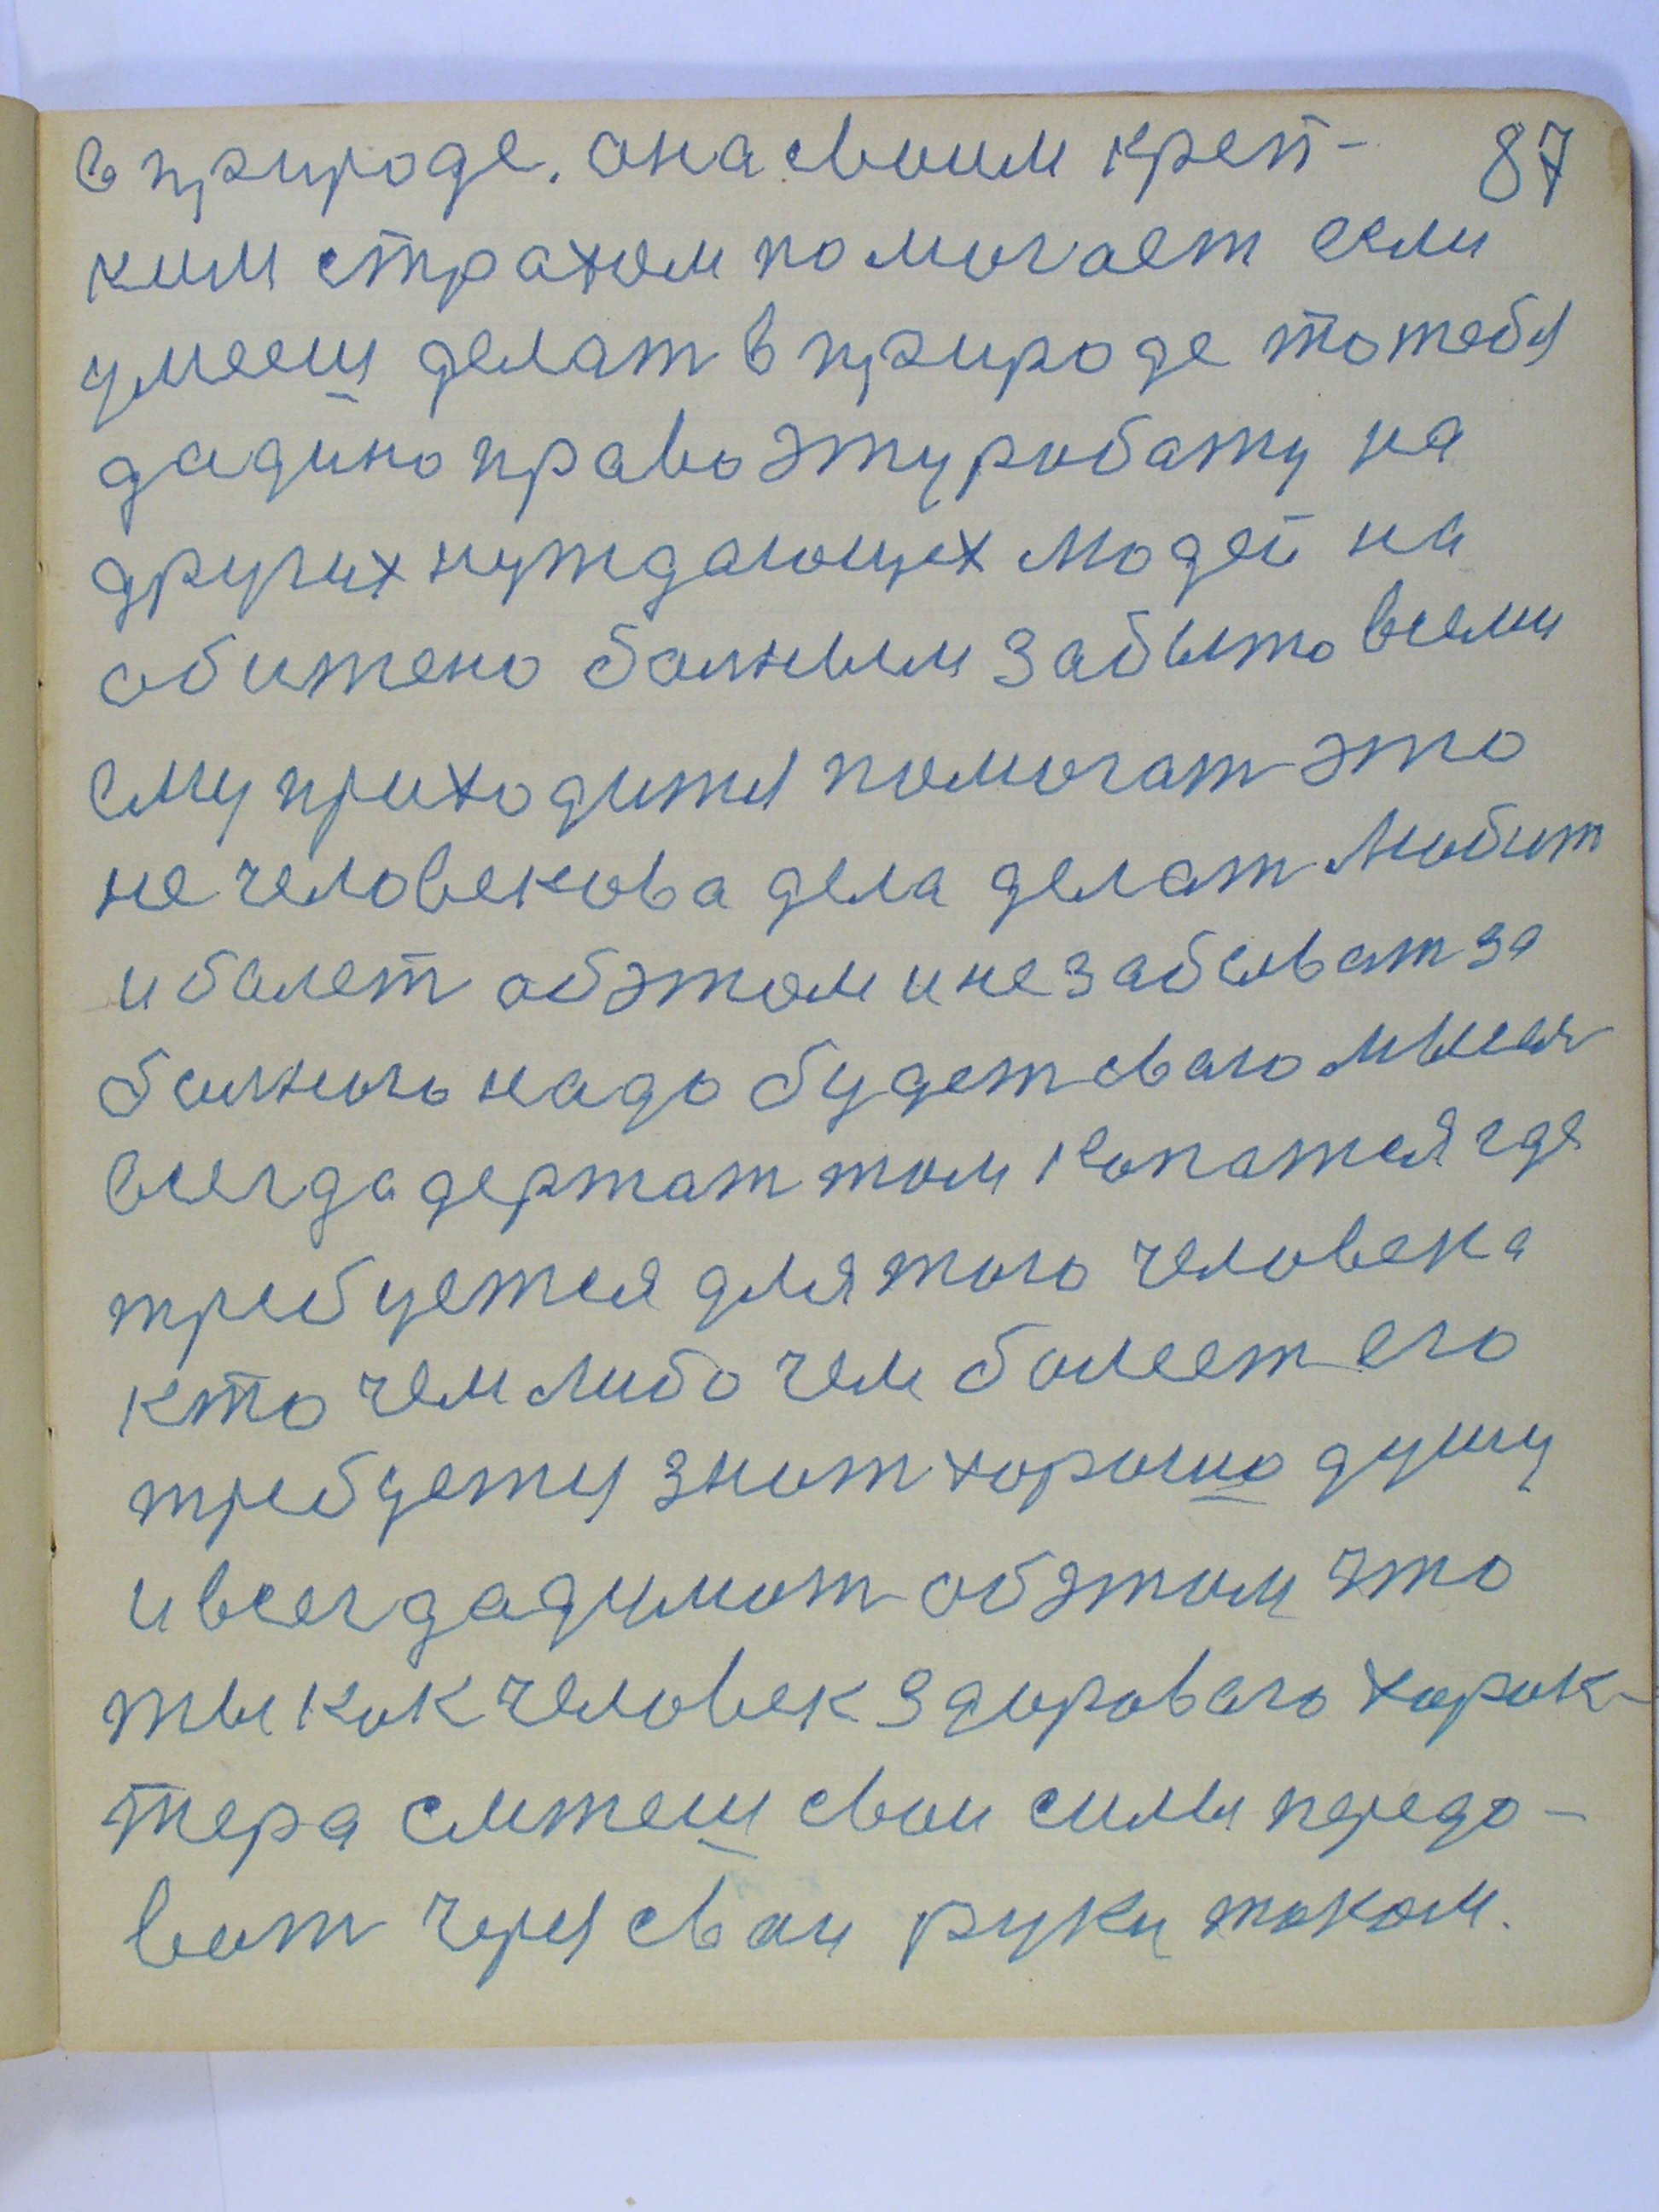 в природе. она своим креп- 87
ким страхом помогает если
умееш делат в природе то тебя
дадино право эту работу на
других нуждающех людей на
обижено болным забыто всеми
ему приходится помогат это
не человекова дела делат любит
и болет обэтом и не забыват за
болного надо будет сваго мысля
всегда держат том копатся где
требуется для того человека
кто чем либо чем болеет его
требуется знат хорошо душу
и всегда думат обэтом что
ты как человек здороваго харак-
тера сметеш свои силы передо-
ват через сваи руки током.